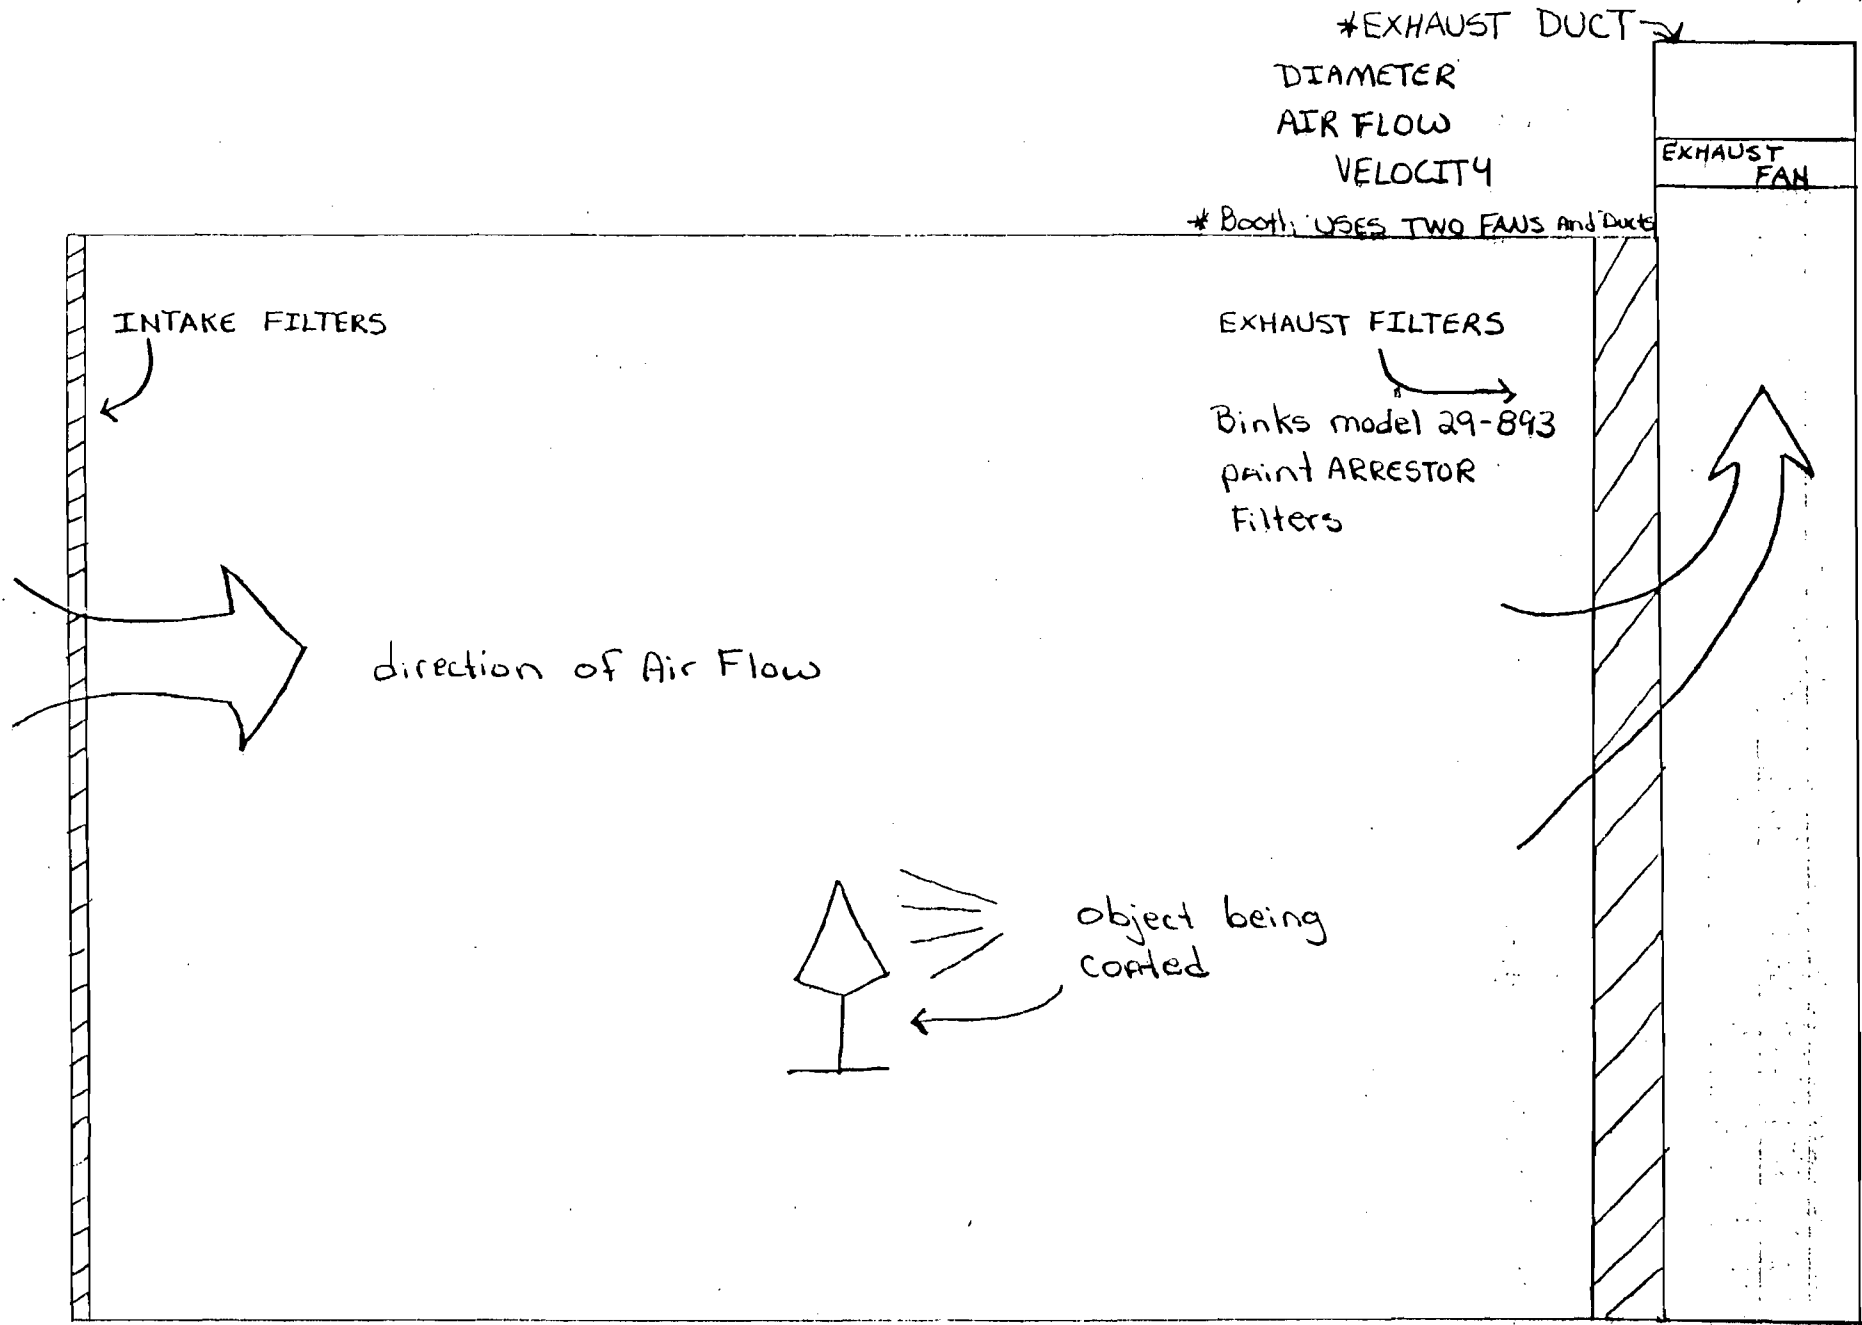 *EXHAUST DUCT
DIAMETER
AIR FLOW
VELOCITY
EXHAUST
FAN
* Booth USES TWO FANS And Ducts
INTAKE FILTERS
EXHAUST FILTERS
Binks model 29-893
paint ARRESTOR
Filters
direction of Air Flow
object being
coated